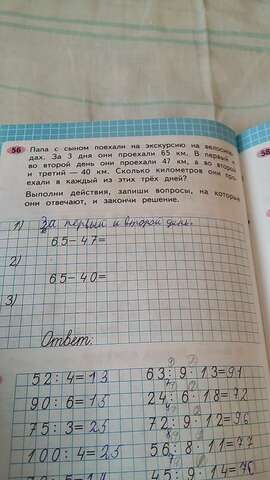 56
Папа с сыном поехали на экскурсию на велосипе
дах. За 3 дня они проехали 65 км. В первый и
во второй день они проехали 47 км, а во второй
и третий — 40 км. Сколько километров они про
ехали в каждый из этих трёх дней?
Выполни действия, запиши вопросы, на которые
они отвечают, и закончи решение.
58
1) За первый и второй день.
65-47=
2)
65-40=
3)
Ответ:
52:4=13 63:9·13=91
90:6=15 24:6·18=72
75:3=25 72:9·12=96
100:4=25 56:8·11=77
45:9·14=70